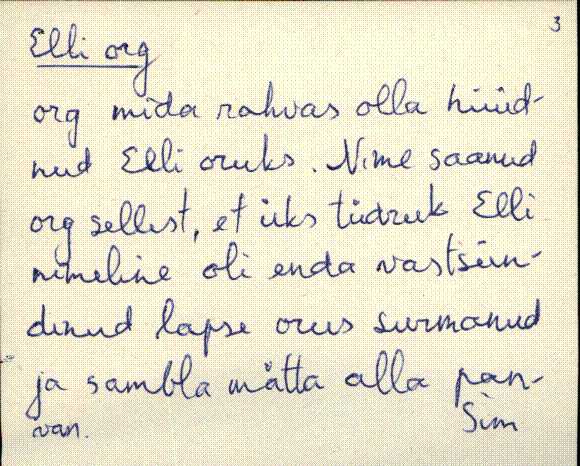 3
Elli org
org mida rahvas olla hüüd-
nud Elli oruks. Nime saanud
org sellest, et üks tüdruk Elli
nimeline oli enda vastsün-
dinud lapse orus surmanud
ja sambla mätta alla pan-
van. Sim